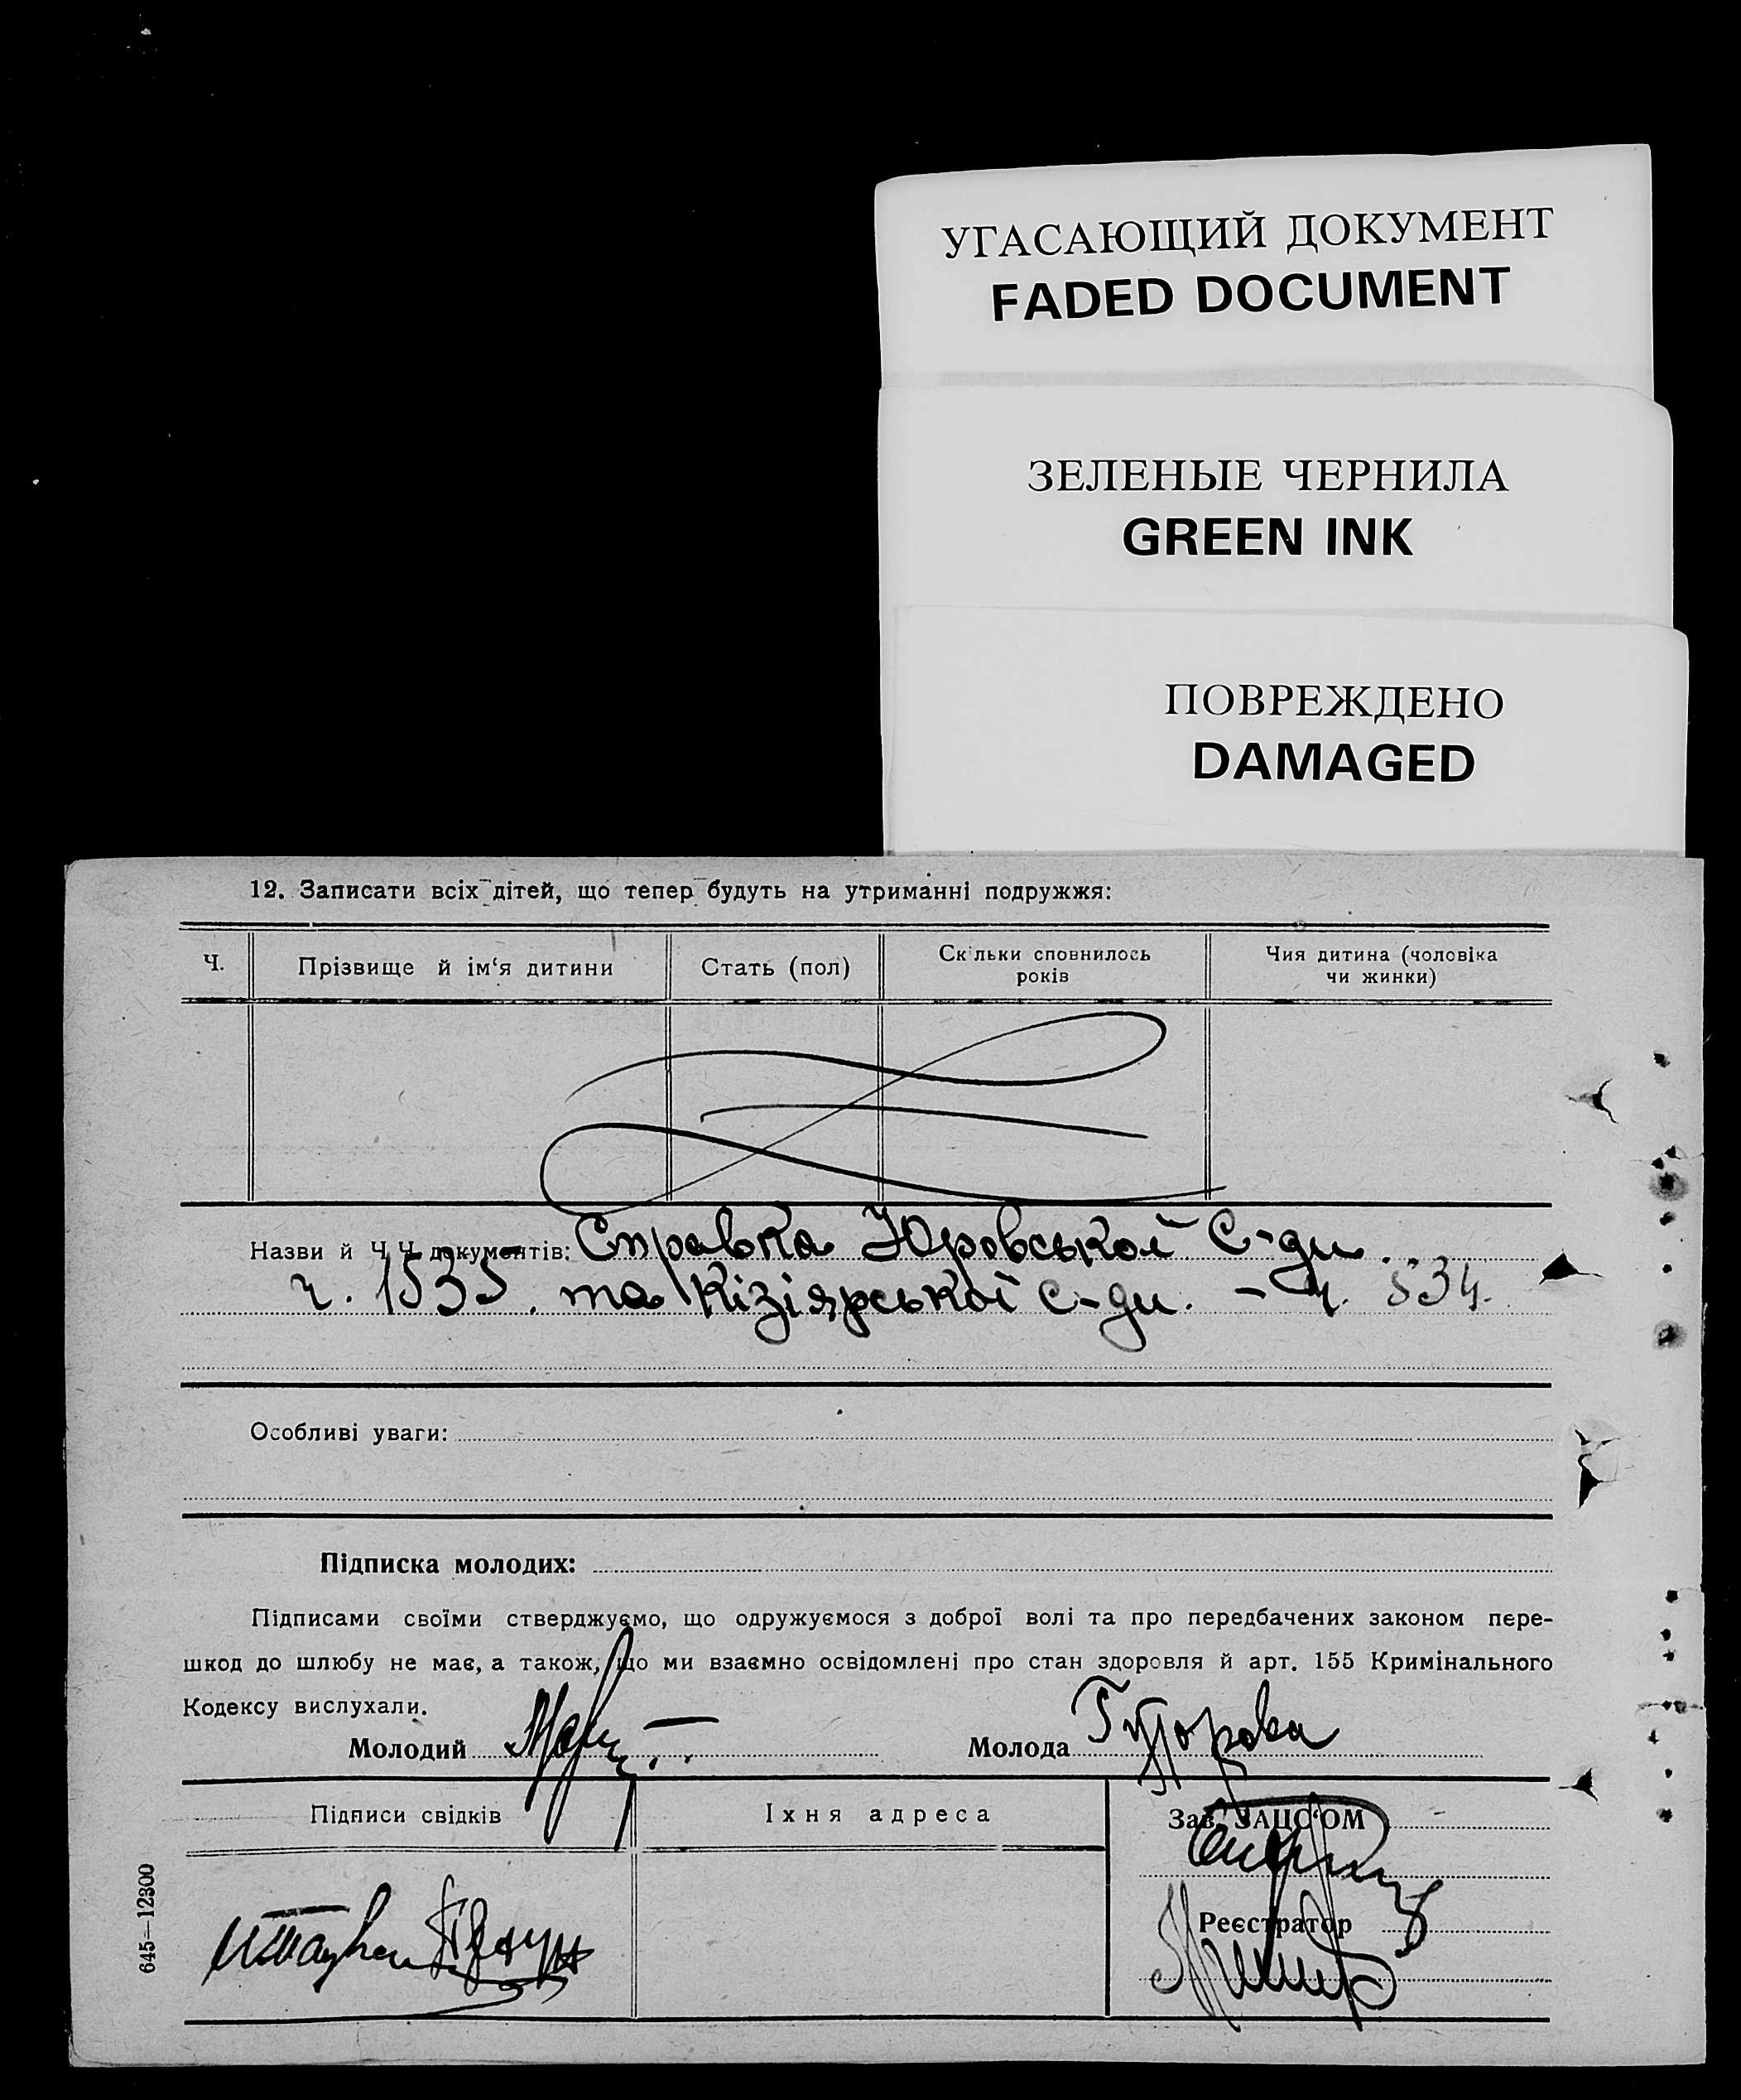 УГАСАЮЩИЙ ДОКУМЕНТ
FADED DOCUMENT
ЗЕЛЕНЫЕ ЧЕРНИЛА
GREEN INK
ПОВРЕЖДЕНО
DAMAGED
12. Записати всіх дітей, що тепер будуть на утриманні подружжя:
Ч.
Прізвище й ім‘я дитини
Стать (пол)
Скільки сповнилось
років
Чия дитина (чоловіка
чи жинки)
Назви й Ч.Ч. документів: Справка Юровської С-ди
ч. 1535. та Кізіярської с-ди. - ч. 534.
Особливі уваги:
Підписка молодих:
Підписами своїми стверджуємо, що одружуємося з доброї волі та про передбачених законом пере-
шкод до шлюбу не має, а також, що ми взаємно освідомлені про стан здоровля й арт. 155 Кримінального
Кодексу вислухали.
Молодий
Молода
Підписи свідків
Їхня адреса
Зав. ЗАЦС‘ОМ
Реєстратор
645—12300